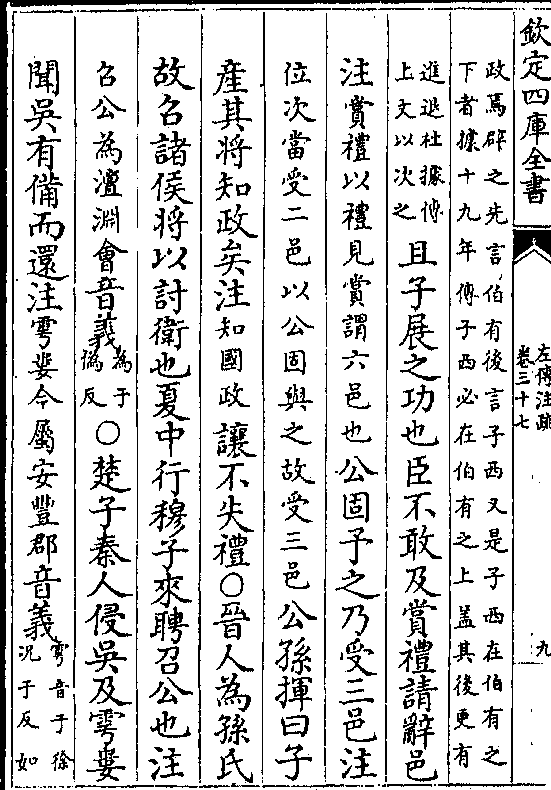 欽定四庫全書
左傳注疏
卷三十七
九
政焉辟之先言伯有後言子西又是子西在伯有之
下者據十九年傳子西必在伯有之上蓋其後更有
進退杜據傳
上文以次之
且子展之功也臣不敢及賞禮請辭邑
注賞禮以禮見賞謂六邑也公固予之乃受三邑注
位次當受二邑以公固與之故受三邑公孫揮曰子
產其將知政矣注知國政讓不失禮○晉人為孫氏
故召諸侯將以討衛也夏中行穆子來聘召公也注
召公為澶淵會音義
為于
偽反
○楚子秦人侵吳及雩婁
聞吳有備而還注雩婁今屬安豐郡音義
雩音于徐
況于反如